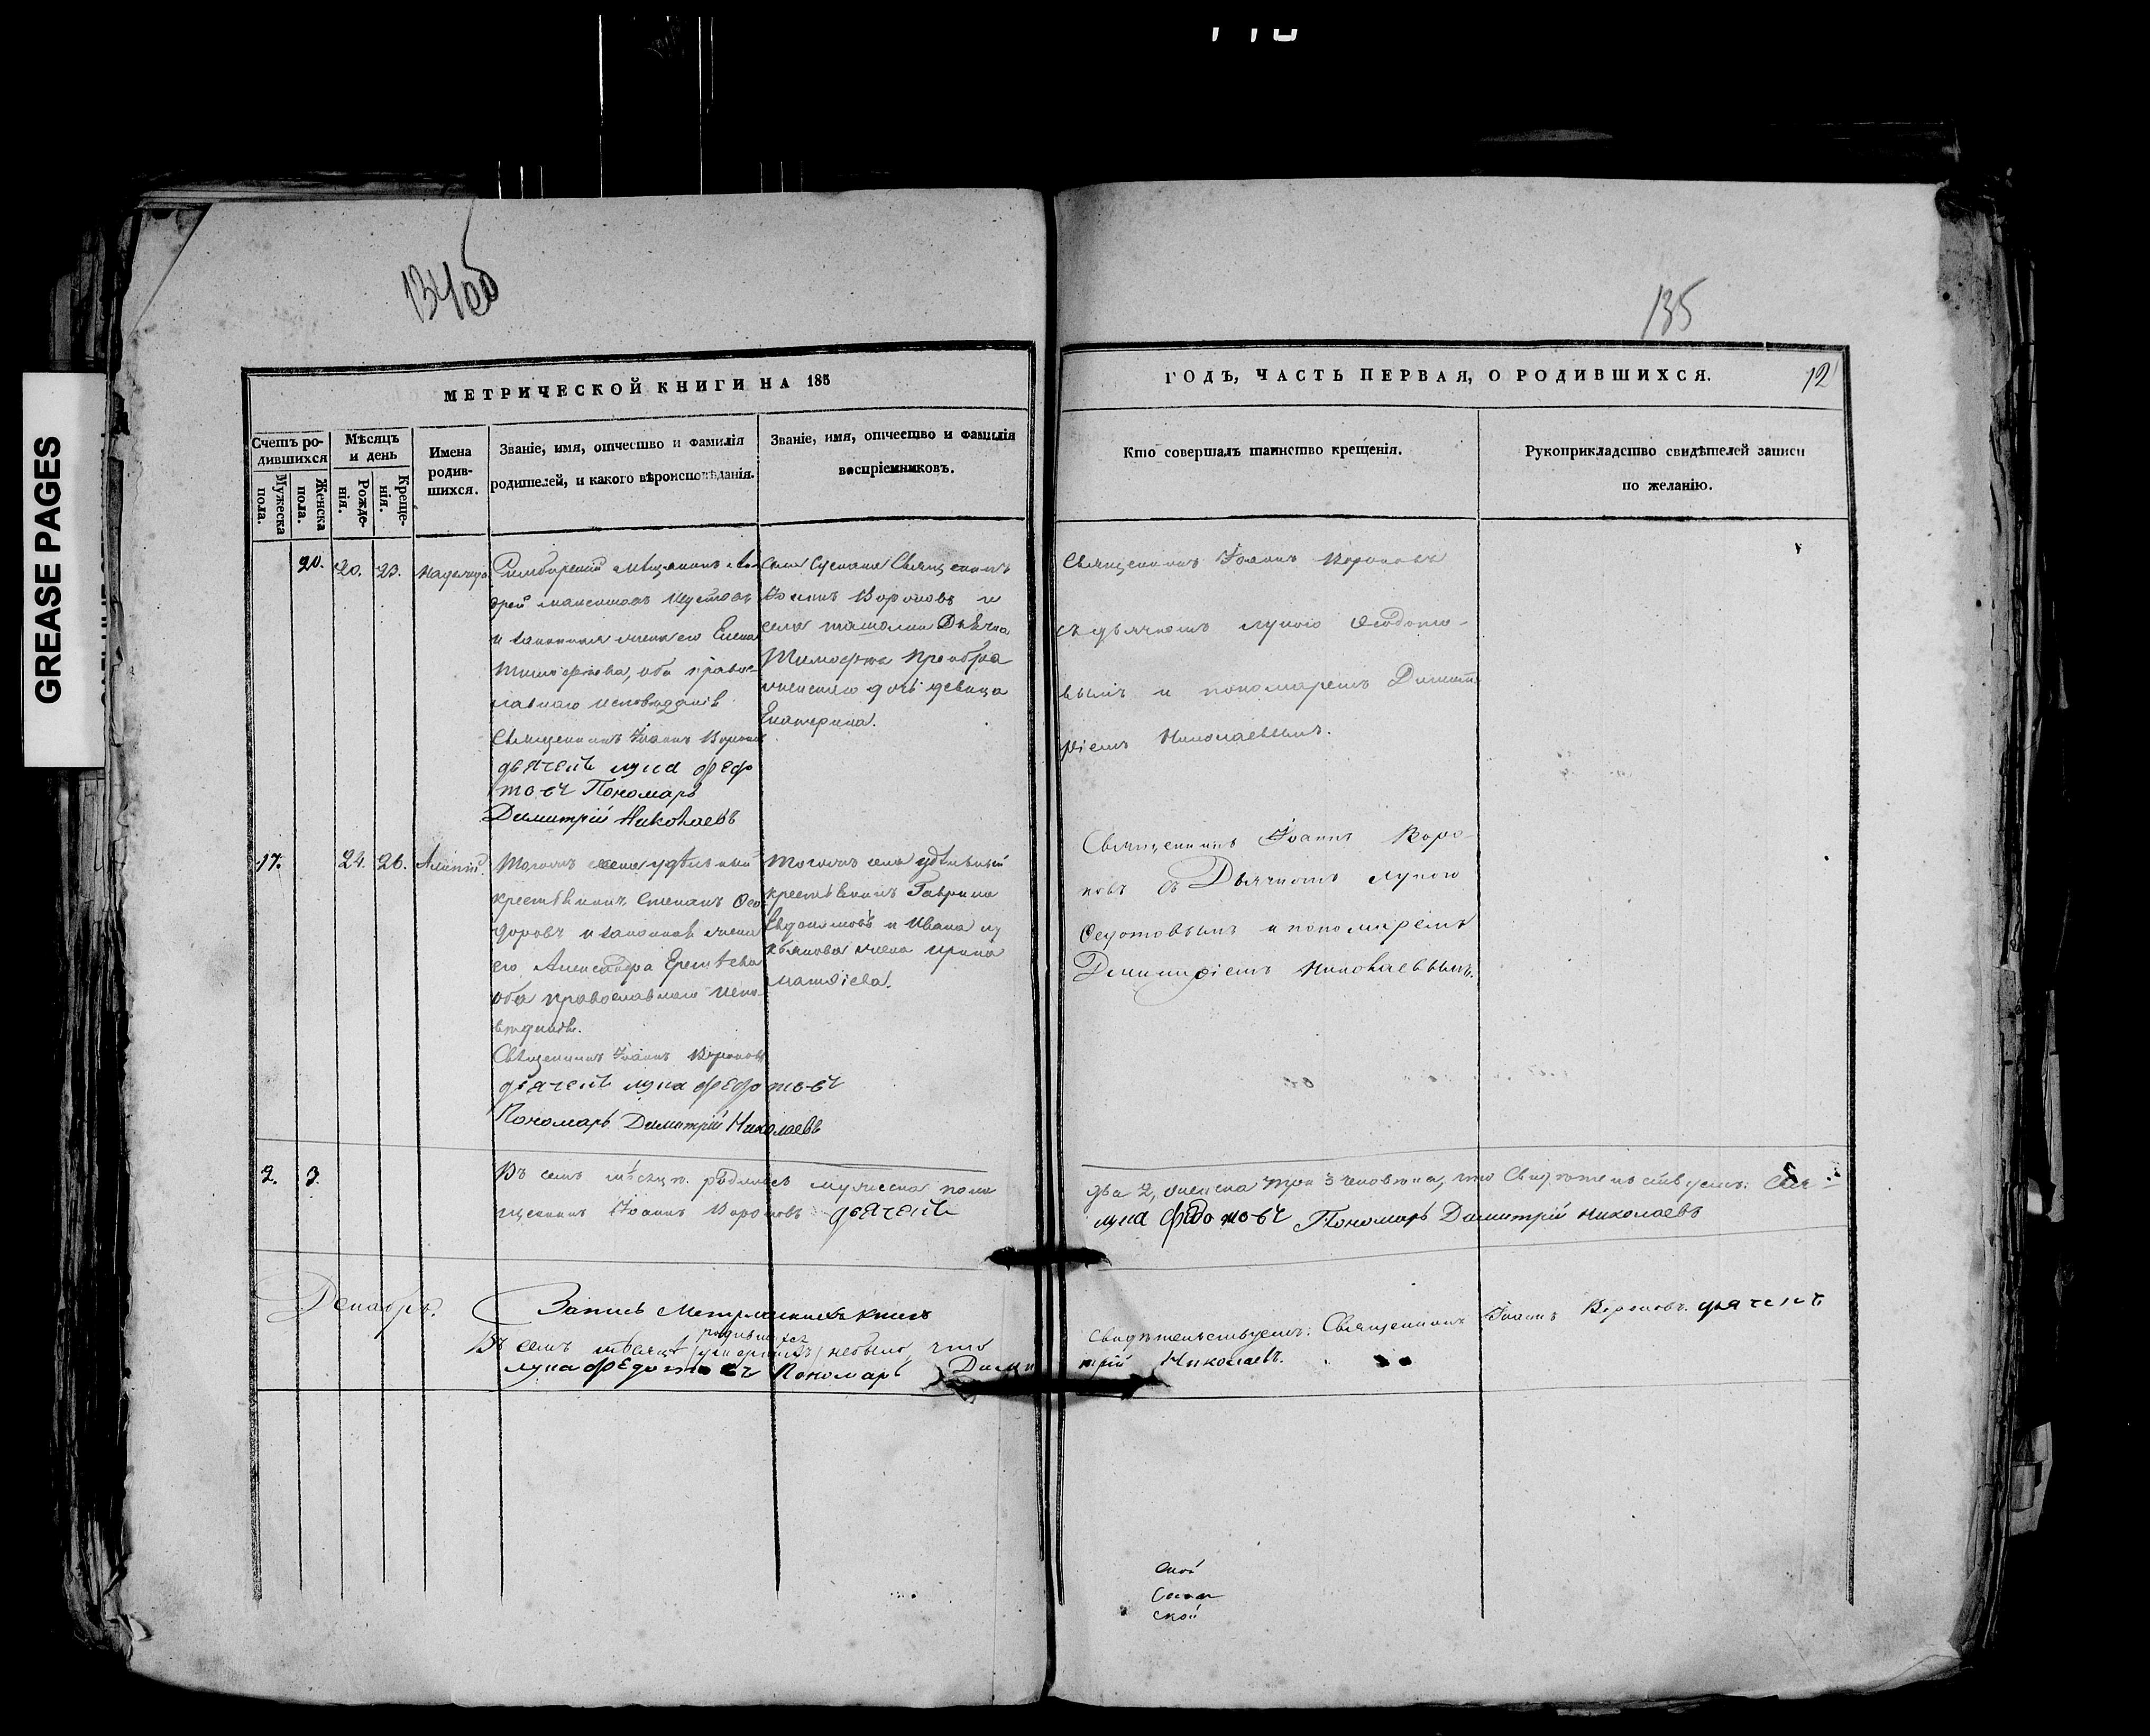 GREASE PAGES
134об
135
МЕТРИЧЕСКОЙ КНИГИ НА 185
ГОДЪ, ЧАСТЬ ПЕРВАЯ, О РОДИВШИХСЯ.
12
Счетъ ро-
дившихся
Мужеска
пола.
Женска
пола.
Мѣсяцъ
и день
Рожде-
нія.
Креще-
нія.
Имена
родив-
шихся.
Званіе, имя, отчество и фамилія
родителей, и какого вѣроисповѣданія.
Званіе, имя, отчество и фамилія
воспріемниковъ.
Кто совершалъ таинство крещенія.
Рукоприкладство свидѣтелей записи
по желанію.
20.
20.
23.
Надежда
Симбирскій мѣщанинъ Ан
дрей
и законная жена его Елена
Тимофѣева, оба право
славнаго исповѣданія
Священникъ Іоаннъ Вороновъ
дьячекъ лука федо
товъ Пономарь
Димитрій Николаевъ
Священникъ
Іоаннъ Вороновъ и
села Дьячка
Тимофея Преобра
женскаго дочь девица
Екатерина.
Священникъ Іоаннъ Вороновъ
съ дьячкомъ лукою Ѳедото-
вымъ и пономаремъ Димит
ріемъ Николаевымъ.
17.
24.
26.
Алипій.
Тогожъ села удѣльный
крестьянинъ Степанъ Ѳео
доровъ и законная жена
его Александра
оба православнаго испо
вѣданія.
Священникъ Іоаннъ Вороновъ
дьячекъ лука федотовъ
Пономарь Димитрій Николаевъ
Тогожъ села удѣльный
крестьянинъ Гаврила
Евдокимовъ и Ивана лу
кьянова жена Ирина
матѳіева.
Священникъ Іоаннъ Воро
новъ съ Дьячкомъ лукою
Ѳедотовымъ и пономаремъ
Димитріемъ Николаевымъ.
2.
3.
Въ семъ мѣсяцѣ родилось мужеска пола
два 2, женска три 3 человѣка, что Свидѣтельствуемъ: Свя-
щенникъ Іоаннъ Вороновъ дьячекъ
лука федотовъ Пономарь Димитрій Николаевъ
Декабрь.
Запись Метрическихъ книгъ
родившихся
Въ семъ мѣсяцѣ небыло, что
свидѣтельствуемъ: Священникъ Іоаннъ Вороновъ. дьячекъ
лука федотовъ Пономарь Дими
трій Николаевъ.
ской